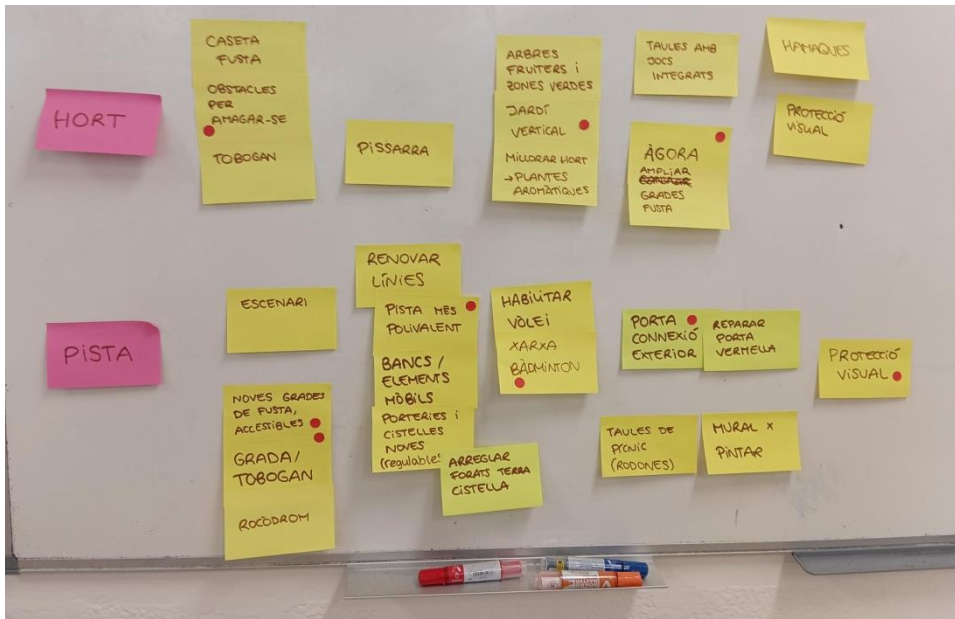 HORT
CASETA
FUSTA
OBSTACLES
PER
AMAGAR-SE
TOBOGAN
PISSARRA
ARBRES
FRUITERS i
ZONES VERDES
JARDÍ
VERTICAL
MILLORAR HORT
→ PLANTES
AROMÀTIQUES
TAULES AMB
JOCS
INTEGRATS
ÀGORA
AMPLIAR
GRADES
FUSTA
HAMAQUES
PROTECCIÓ
VISUAL
PISTA
ESCENARI
NOVES GRADES
DE FUSTA,
ACCESSIBLES
GRADA/
TOBOGAN
ROCÒDROM
RENOVAR
LÍNIES
PISTA MÉS
POLIVALENT
BANCS /
ELEMENTS
MÒBILS
PORTERIES i
CISTELLES
NOVES
(regulables
ARREGLAR
FORATS TERRA
CISTELLA
HABILITAR
VÒLEI
XARXA
BÀDMINTON
PORTA
CONNEXIÓ
EXTERIOR
REPARAR
PORTA
VERMELLA
TAULES DE
PÍCNIC
(RODONES)
MURAL x
PINTAR
PROTECCIÓ
VISUAL